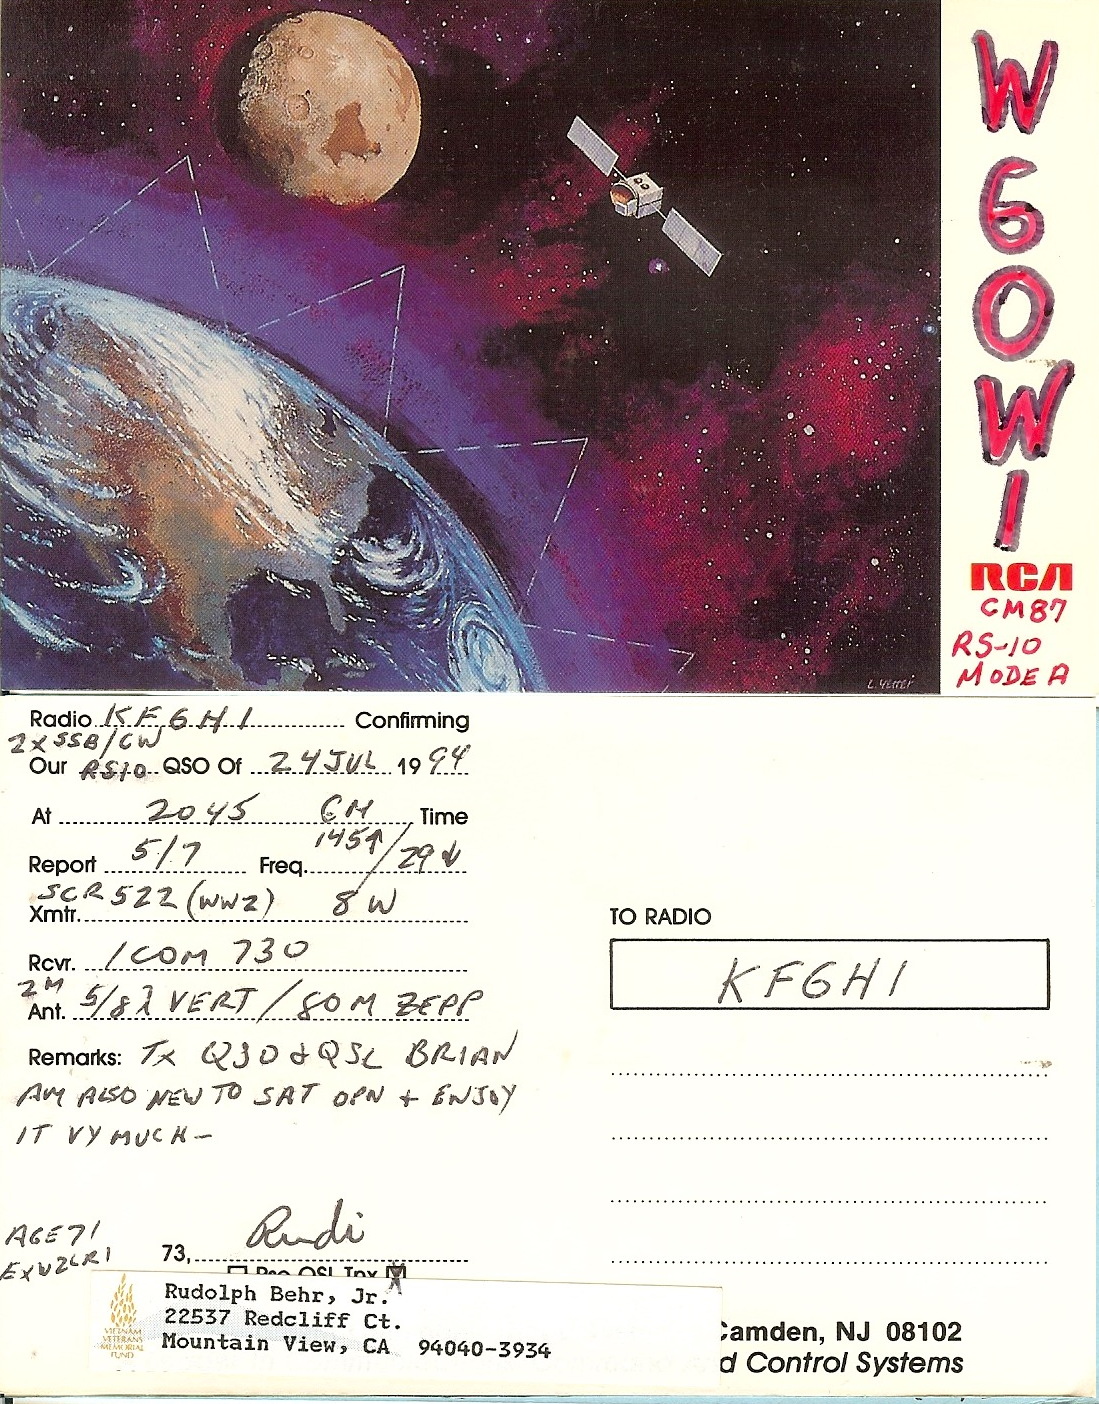 W6OWI
RCA
CM87
RS-10
MODE A
L. Yetter
Radio KF6HI Confirming
2xSSB/CW
Our RS10 QSO Of 24 JUL 1994
At 2045 GM Time
145↑/29↓
Report 5/7 Freq.
SCR 522 (WW2) 8 W
Xmtr.
Rcvr. ICOM 730
2M
Ant. 5/8λ VERT / 80M ZEPP
Remarks: TX QSO & QSL BRIAN
AM ALSO NEW TO SAT OPN + ENJOY
IT VY MUCH -
AGE 71
73, Rudi
Pse QSL Tnx X
TO RADIO
KF6HI
VIETNAM
VETERANS
MEMORIAL
FUND
Rudolph Behr, Jr.
22537 Redcliff Ct.
Mountain View, CA 94040-3934
Camden, NJ 08102
d Control Systems